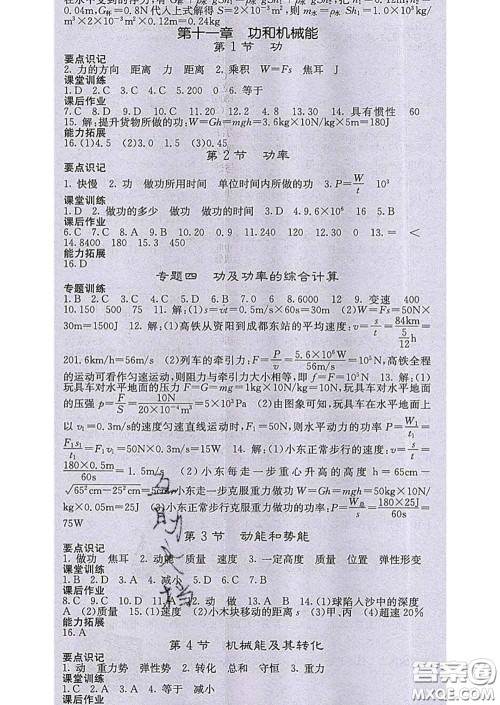 0.04m, G杯=0.8N代入上式解得S=2×10⁻³m², 则m水=ρ水Sh₁=1.0×10³kg/
m³×2×10⁻³m²×0.12m=0.24kg
第十一章 功和机械能
第1节 功
要点识记
2. 力的方向 距离 力 距离 2. 乘积 W=Fs 焦耳 J
课堂训练
1. D 2. C 3. C 4. C 5. 200 0 6. 等于
课后作业
7. C 8. C 9. D 10. C 11. 20 12. 2 4.8 13. 30 14. 具有惯性 60
15. 解:提升货物所做的功:W=Gh=mgh=3.6kg×10N/kg×5m=180J
能力拓展
16. (1)4.5 (2)3.0 1.5 (3)0.45
第2节 功率
要点识记
1. 快慢 2. 功 做功所用时间 单位时间内所做的功 3. P=W/t 10³
课堂训练
1. D 2. 做功的多少 做功 2. D 3. D 4. 9.6×10⁶ 16 5. B
课后作业
6. C 7. C 8. A 9. B 10. D 11. D 12. D 13. = <
14. 8400 180 15. D
能力拓展
16. D
专题四 功及功率的综合计算
专题训练
1. B 2. C 3. B 4. C 5. B 6. B 7. 0 8. 6000 12 9. 变速 400
10. 150 500 75 11. 解:(1)s=vt=0.5m/s×60s=30m (2)W=Fs=50N×
30m=1500J 12. 解:(1)高铁从资阳到成都东站的平均速度:v=s/t=84km/(5/12 h)=
201.6km/h=56m/s (2)列车的牵引力:F=P/v=5.6×10⁶W/56m/s=10⁵N, 高铁全程
的运动可看作匀速运动,则阻力与牵引力大小相等,即f=F=10⁵N 13. 解:(1)
玩具车对水平地面的压力F=G=mg=1kg×10N/kg=10N, 玩具车对水平地面
的压强p=F/S=10N/20×10⁻⁴m²=5×10³Pa (2)由图象可知,玩具车在水平地面上
以v₁=0.3m/s的速度匀速直线运动时,F₁=50N,则水平动力的功率P=W₁/t₁=
F₁s₁/t₁=F₁v₁=50N×0.3m/s=15W 14. 解:(1)小东正常步行的速度:v=s/t=
180×0.5m/60s=1.5m/s (2)小东每走一步重心升高的高度h=65cm-
√65²cm-25²cm=5cm 小东走一步克服重力做功W=Gh=mgh=50kg×10N/kg
×0.05m=25J (3)小东正常步行克服重力做功的功率:P=W总/t=180×25J/60s=
75W
第3节 动能和势能
要点识记
1. 做功 焦耳 2. 动能 质量 速度 3. 一定高度 质量 位置 弹性形变
课堂训练
1. B 2. D 3. A 4. 减小 5. D
课后作业
8. C 9. C 10. D 11. A 12. A 13. A 14. (1)球陷入沙中的深度
A (2)质量 15. (1)速度 (2)小木块移动的距离 s (3)甲、丙 (4)超速20%
能力拓展
16. A
第4节 机械能及其转化
要点识记
1. 动 重力势 弹性势 2. 转化 总和 守恒 3. 重力
课堂训练
1. C 2. A 3. A 4. 等于 减小
课后作业
答案圈
MXQE.COM